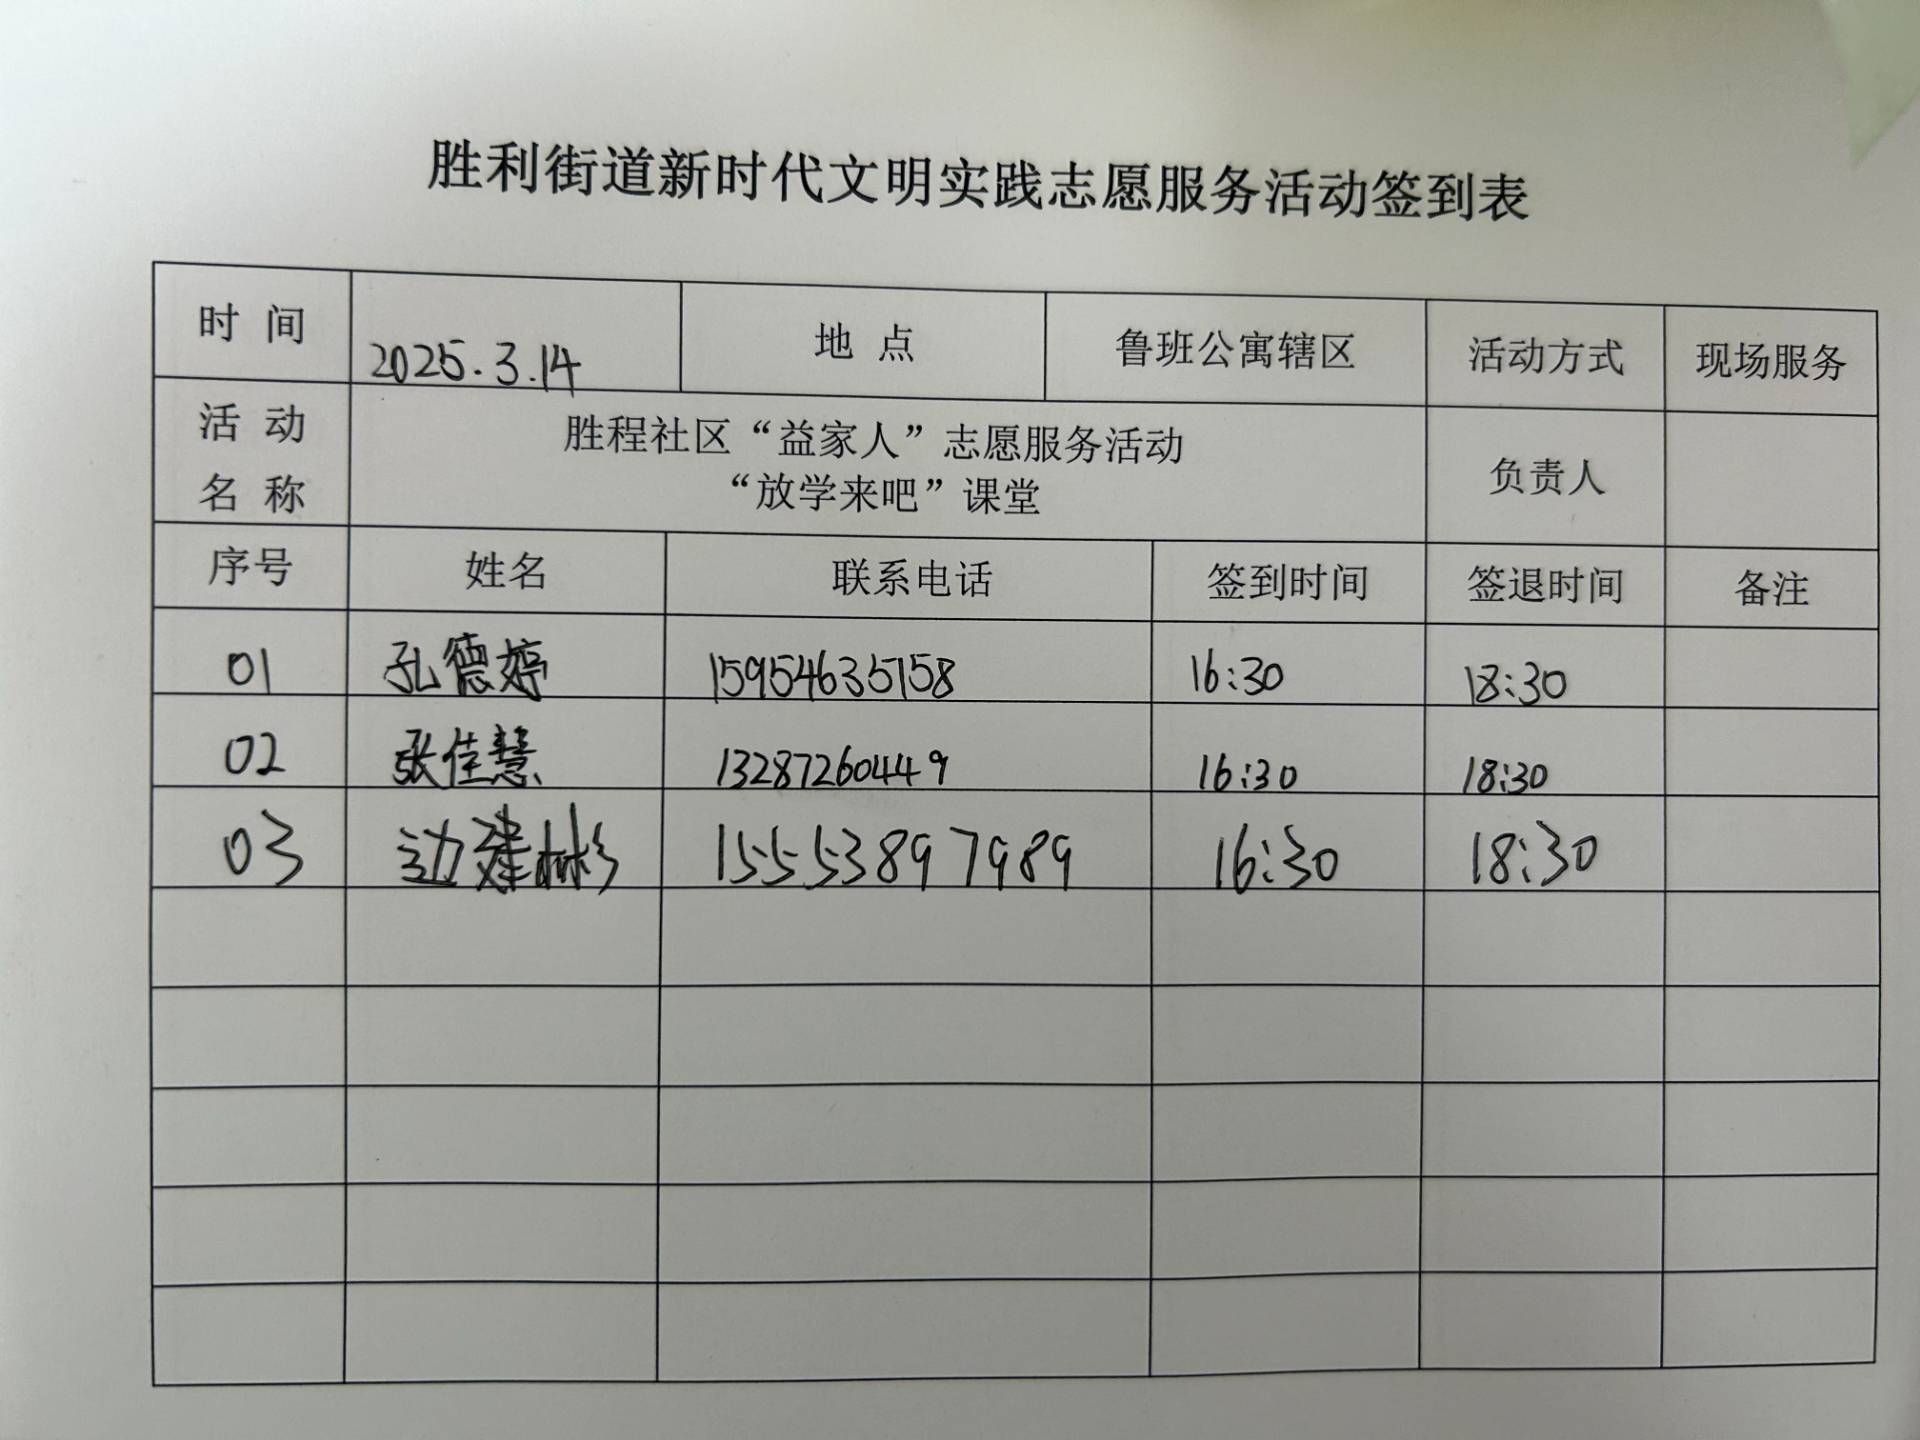 胜利街道新时代文明实践志愿服务活动签到表
时 间 2025.3.14 地 点 鲁班公寓辖区 活动方式 现场服务
活 动
名 称
胜程社区“益家人”志愿服务活动
“放学来吧”课堂
负责人
序号 姓名 联系电话 签到时间 签退时间 备注
01 孔德婷 15954635158 16:30 18:30
02 张佳慧 13287260449 16:30 18:30
03 边建彬 15553897989 16:30 18:30